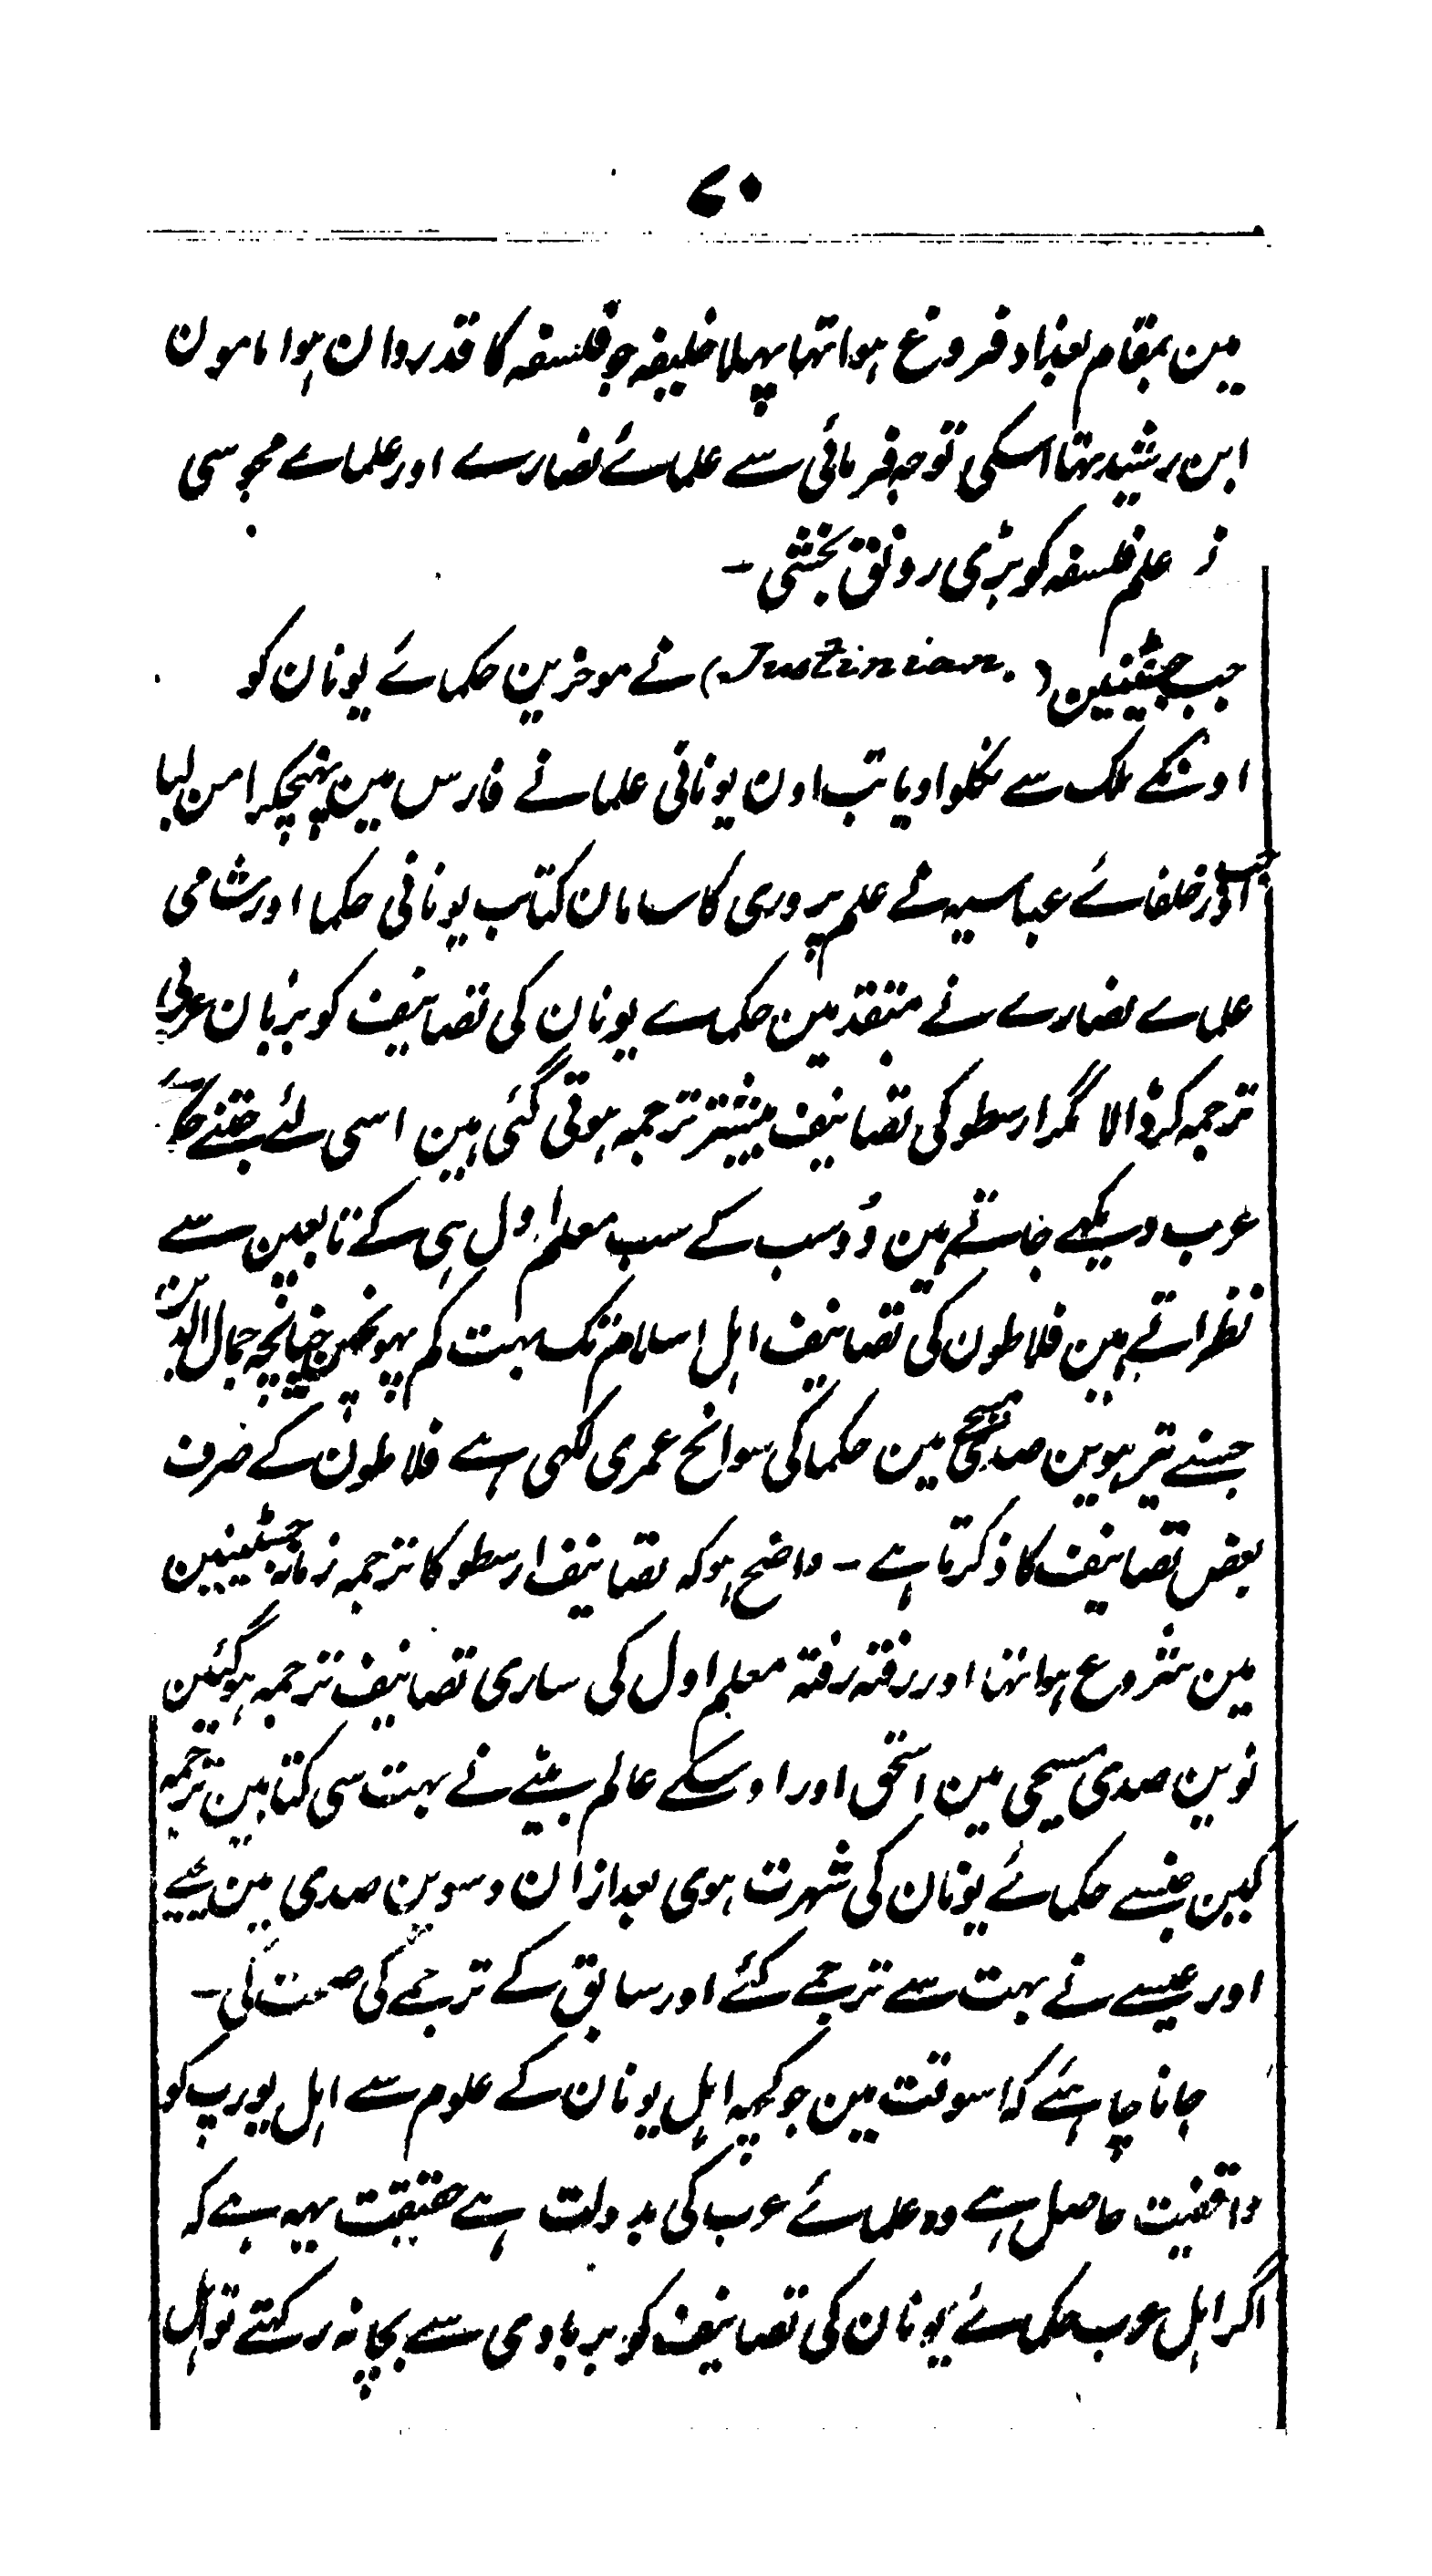 ۷۰
مین بمقام بغداد فروغ ہوا تھا پہلا خلیفہ جو فلسفہ کا قدردان ہوا مامون
ابن رشید تھا اسکی توجہ فرمائی سے علمائے نصارے اور علماے مجوسی
نے علم فلسفہ کو بڑی رونق بخشی ۔
جب جسٹینین (Justinian.) نے موخرین حکمائے یونان کو
اونکے ملک سے نکلوا دیا تب اون یونانی علما نے فارس مین پہنچکر امن لیا
جب اور خلفائے عباسیہ نے علم پروری کا سامان کتاب یونانی حکما اور شامی
علماے نصارے نے متقدمین حکماے یونان کی تصانیف کو بزبان عربی
ترجمہ کر ڈالا مگر ارسطو کی تصانیف بیشتر ترجمہ ہوتی گئی ہین اسی لئے جتنے حکمائے
عرب دیکھے جاتے ہین وُہ سب کے سب معلم اول ہی کے تابعین سے
نظر اتے ہین فلاطون کی تصانیف اہل اسلام تک بہت کم پہونچین چنانچہ جمال الدین
جسنے تیرہوین صدی مسیحی مین حکما کی سوانح عمری لکھی ہے فلاطون کے صرف
بعض تصانیف کا ذکر کرتا ہے ۔ واضح ہو کہ تصانیف ارسطو کا ترجمہ زمانہ جسٹینین
مین شروع ہوا تھا اور رفتہ رفتہ معلم اول کی ساری تصانیف ترجمہ ہوگئین
نوین صدی مسیحی مین اسحٰق اور اوسکے عالم بیٹے نے بہت سی کتابین ترجمہ
کین جنسے حکمائے یونان کی شہرت ہوی بعد ازان دسوین صدی مین یحیے
اور عیسے نے بہت سے ترجمے کئے اور سابق کے ترجمے کی صحت کی ۔
جاننا چاہئے کہ اسوقت مین جو کچھ اہل یونان کے علوم سے اہل یورپ کو
واقفیت حاصل ہے وہ علمائے عرب کی بدولت ہے حقیقت یہہ ہے کہ
اگر اہل عرب حکمائے یونان کی تصانیف کو بربادی سے بچا نہ رکھتے تو اہل